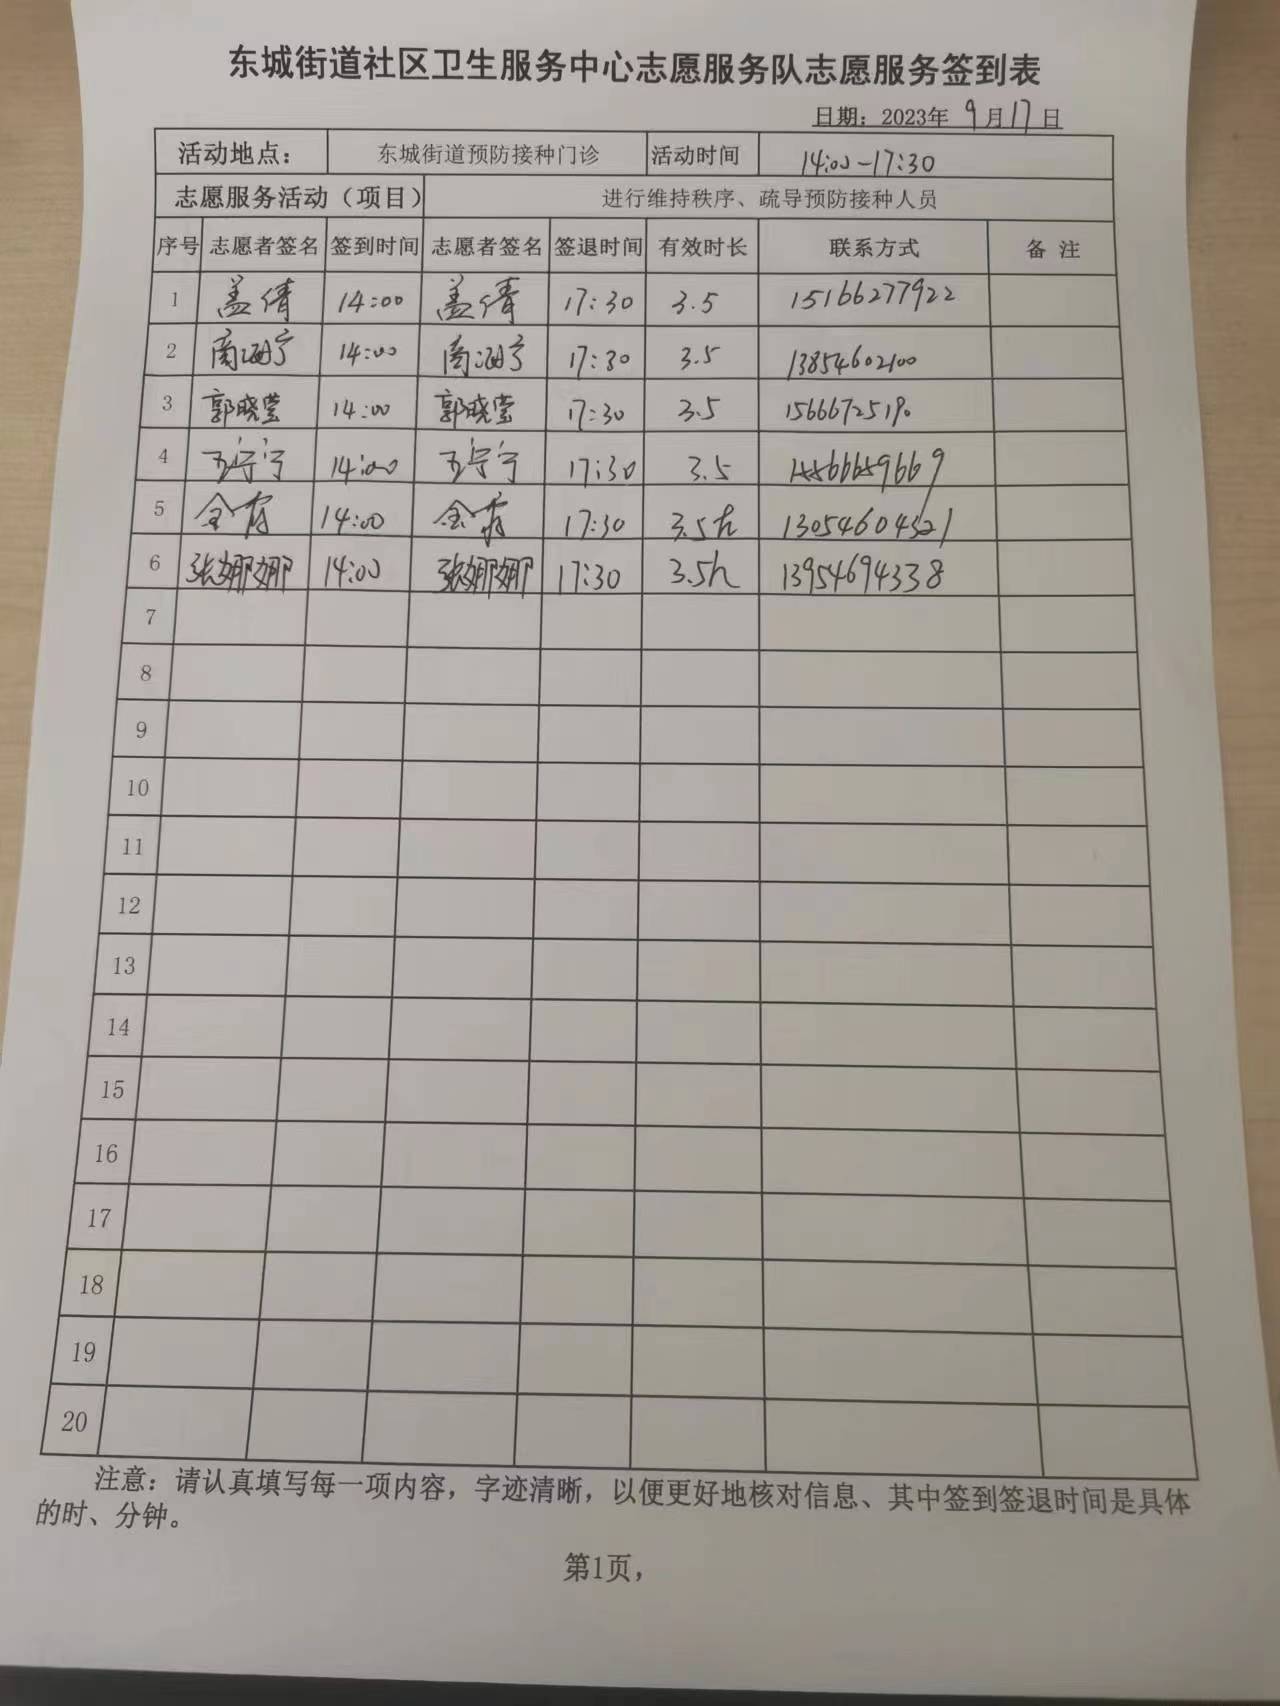 东城街道社区卫生服务中心志愿服务队志愿服务签到表
日期：2023年 9月17日
活动地点： 东城街道预防接种门诊 活动时间 14:00-17:30
志愿服务活动（项目） 进行维持秩序、疏导预防接种人员
序号 志愿者签名 签到时间 志愿者签名 签退时间 有效时长 联系方式 备 注
1 盖倩 14:00 盖倩 17:30 3.5 15166277922
2 14:00 17:30 3.5 13854602100
3 郭晓莹 14:00 郭晓莹 17:30 3.5 15666725190
4 王宁宁 14:00 王宁宁 17:30 3.5
5 14:00 17:30 3.5h 13054604321
6 张娜娜 14:00 张娜娜 17:30 3.5h 13954694338
7
8
9
10
11
12
13
14
15
16
17
18
19
20
注意：请认真填写每一项内容，字迹清晰，以便更好地核对信息、其中签到签退时间是具体
的时、分钟。
第1页，